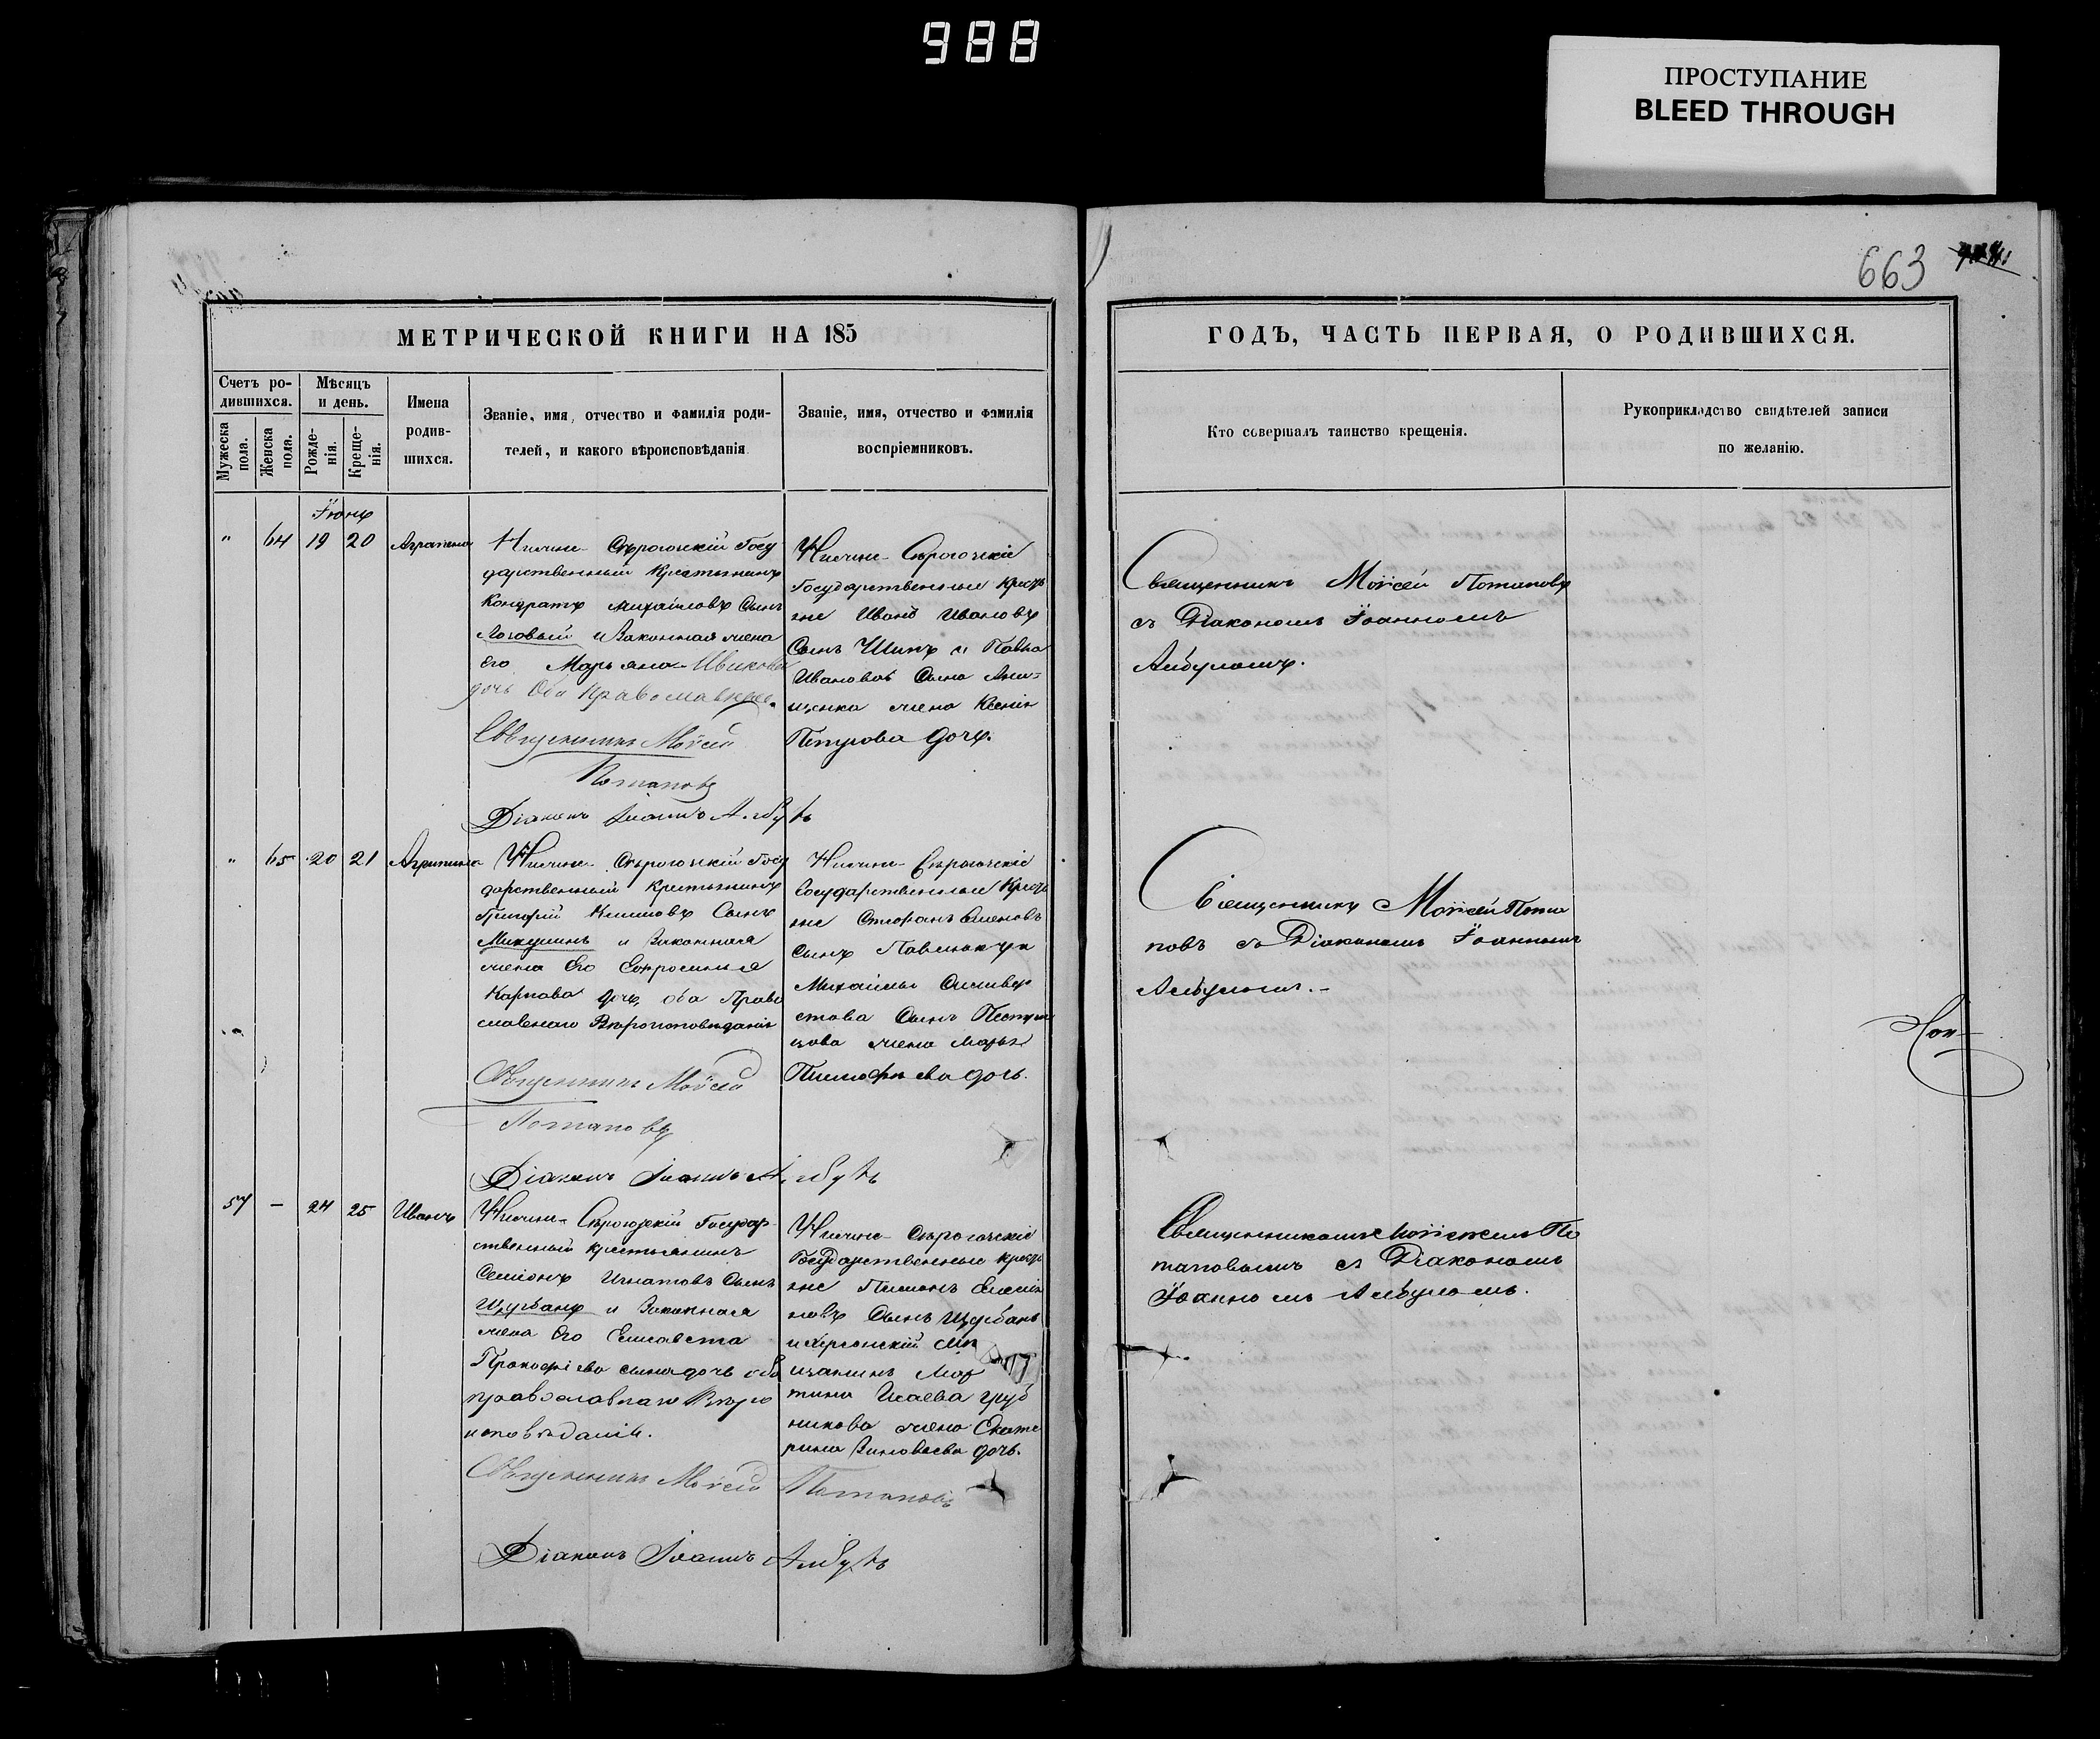 988
ПРОСТУПАНИЕ
BLEED THROUGH
663
МЕТРИЧЕСКОЙ КНИГИ НА 185
Счетъ ро-
дившихся.
Мужеска
пола.
Женска
пола.
Мѣсяцъ
и день.
Рожде-
нія.
Креще-
нія.
Имена
родив-
шихся.
Званіе, имя, отчество и фамилія роди-
телей, и какого вѣроисповѣданія
Званіе, имя, отчество и фамилія
воспріемниковъ.
Іюнь
" 64 19 20 Агрипина
Нижне-Сѣрогозскій Госу
дарственный Крестьянинъ
Кондратъ Михайловъ Сынъ
Лозовый и Законная жена
его Марьяна
дочь Оба Православные.
Священникъ Моѵсей
Потаповъ
Діаконъ Іоаннъ Албулъ
Нижне-Сѣрогозскіе
Государственные Кресть
яне Иванъ Ивановъ
Сынъ и Павла
Иванова Сына Они-
щенка жена Ксенія
Петрова дочь.
" 65 20 21 Агрипина
Нижне-Сѣрогозскій Госу
дарственный Крестьянинъ
Григорій Климовъ Сынъ
и Законная
жена Его Евфросинья
Карпова дочь, оба Право
славнаго Вѣроисповѣданія
Священникъ Моѵсей
Потаповъ
Діаконъ Іоаннъ Албулъ
Нижне-Сѣрогозскіе
Государственные Кресть
яне Стефанъ Семеновъ
Сынъ Павленко и
Михайлы Силивер
стова Сына
цова жена Марья
Тимофѣева дочь.
57 - 24 25 Иванъ
Нижне-Сѣрогозскій Государ-
ственный крестьянинъ
Семіонъ Игнатовъ Сынъ
Щербань и Законная
жена Его Елисавета
Прокофіева дочь оба
православнаго Вѣро
исповѣданія.
Священникъ Моѵсей Потаповъ
Діаконъ Іоаннъ Албулъ
Нижне-Сѣрогозскіе
Государственные кресть
яне Пименъ Семіо
новъ Сынъ Щербань
и Херсонскій мѣ
щанинъ Мар
тина Исаева Груб
никова жена Екате
рина Зиновьева дочь.
ГОДЪ, ЧАСТЬ ПЕРВАЯ, О РОДИВШИХСЯ.
Кто совершалъ таинство крещенія.
Рукоприкладство свидѣтелей записи
по желанію.
Священникъ Моѵсей Потаповъ
съ Діакономъ Іоанномъ
Албуломъ.
Священникъ Моѵсей Пота
повъ съ Діакономъ Іоанномъ
Албуломъ.-
Священникомъ Моѵсеемъ По
таповымъ съ Діакономъ
Іоанномъ Албуломъ.